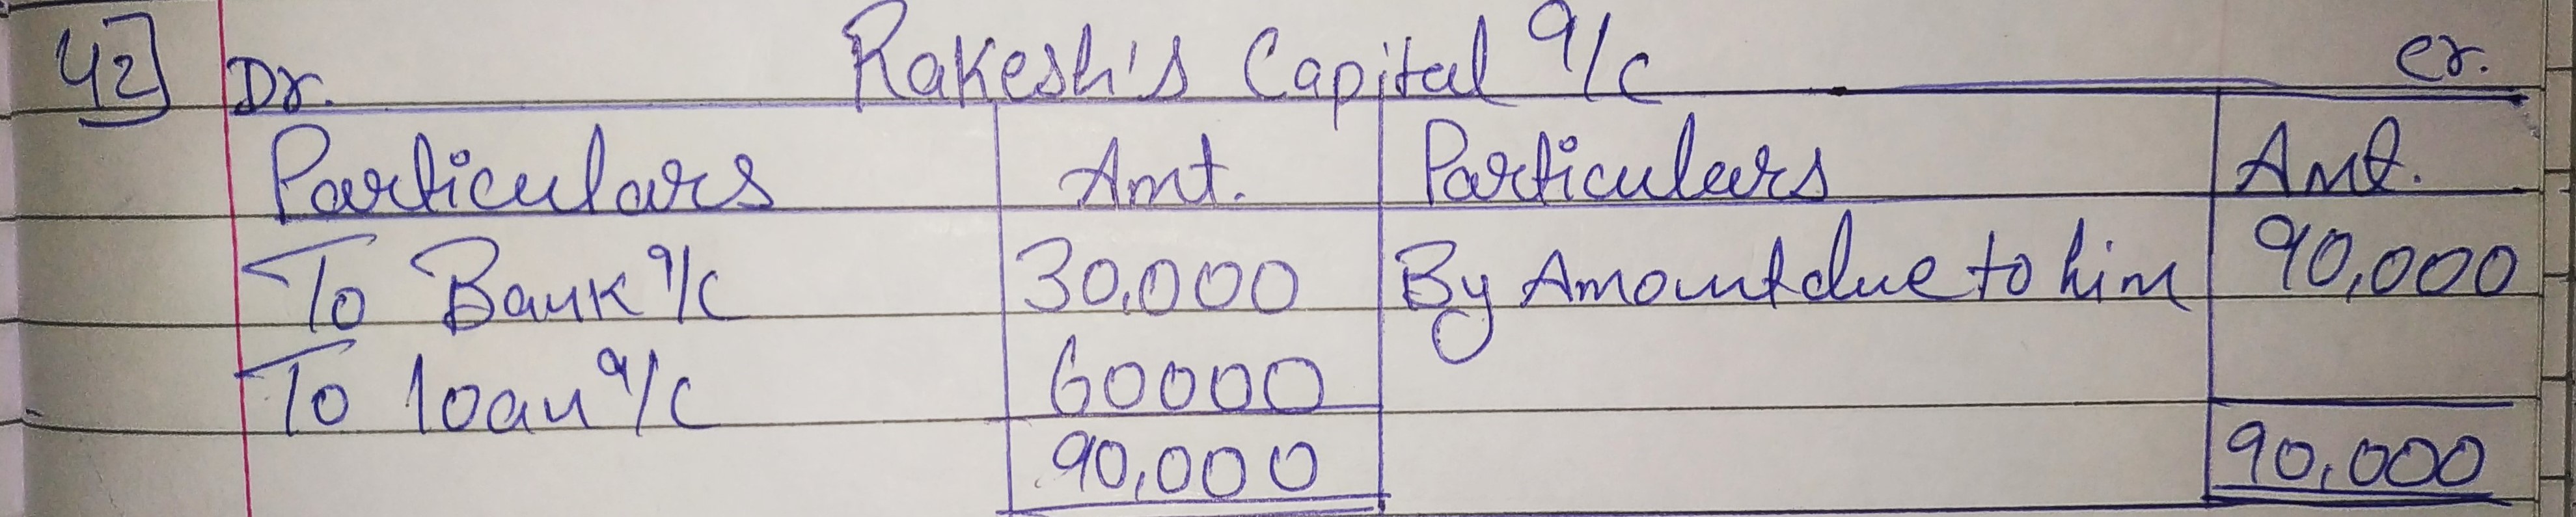 42] Dr. Rakesh's Capital a/c cr.
Particulars Amt. Particulars Amt.
To Bank a/c 30,000 By Amount due to him 90,000
To loan a/c 60000
90,000 90,000